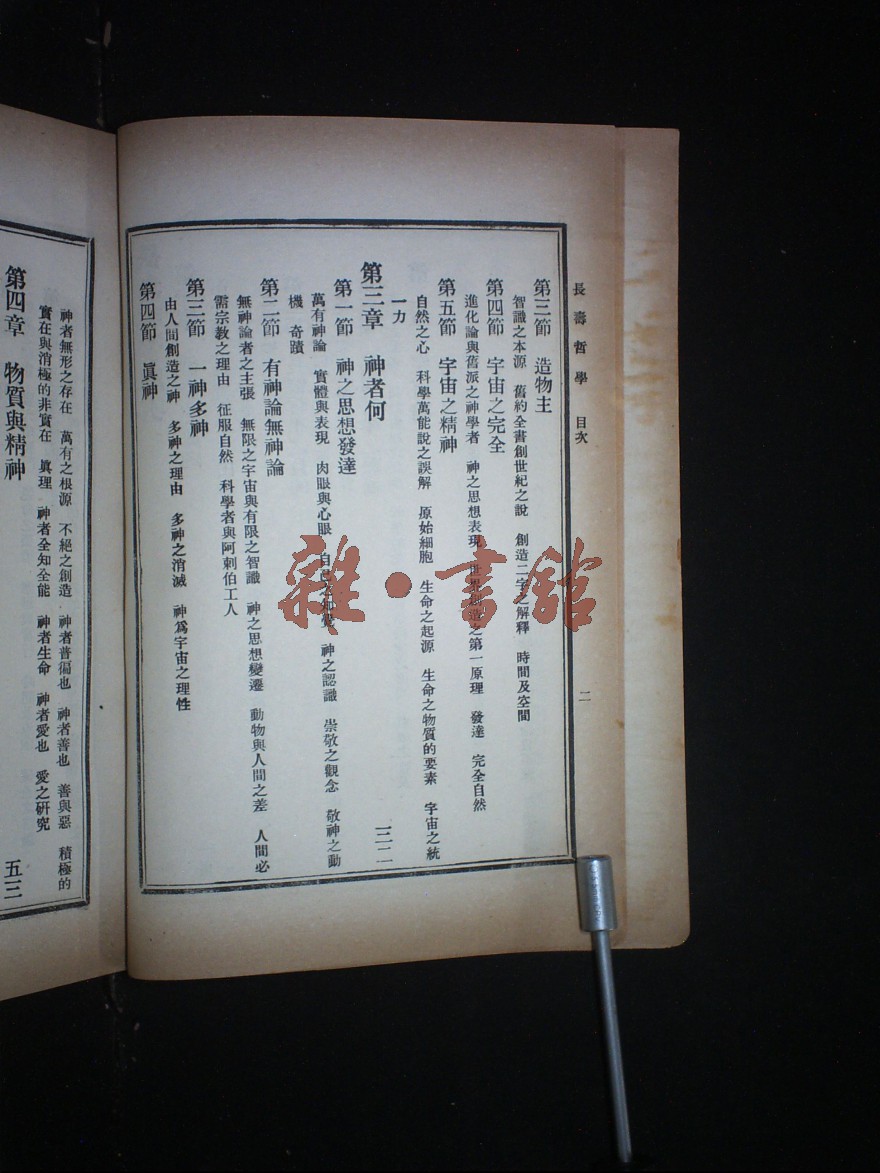 長壽哲學 目次 二
第三節 造物主
智識之本源 舊約全書創世紀之說 創造二字之解釋 時間及空間
第四節 宇宙之完全
進化論與舊派之神學者 神之思想表現 世界創造之第一原理 發達 完全自然
第五節 宇宙之精神
自然之心 科學萬能說之誤解 原始細胞 生命之起源 生命之物質的要素 宇宙之統
一力
第三章 神者何 三二
第一節 神之思想發達
萬有神論 實體與表現 肉眼與心眼 自己之知覺 神之認識 崇敬之觀念 敬神之動
機 奇蹟
第二節 有神論無神論
無神論者之主張 無限之宇宙與有限之智識 神之思想變遷 動物與人間之差 人間必
需宗教之理由 征服自然 科學者與阿剌伯工人
第三節 一神多神
由人間創造之神 多神之理由 多神之消滅 神爲宇宙之理性
第四節 眞神
神者無形之存在 萬有之根源 不絕之創造 神者普徧也 神者善也 善與惡 積極的
實在與消極的非實在 眞理 神者全知全能 神者生命 神者愛也 愛之研究
第四章 物質與精神 五三
雜·書館